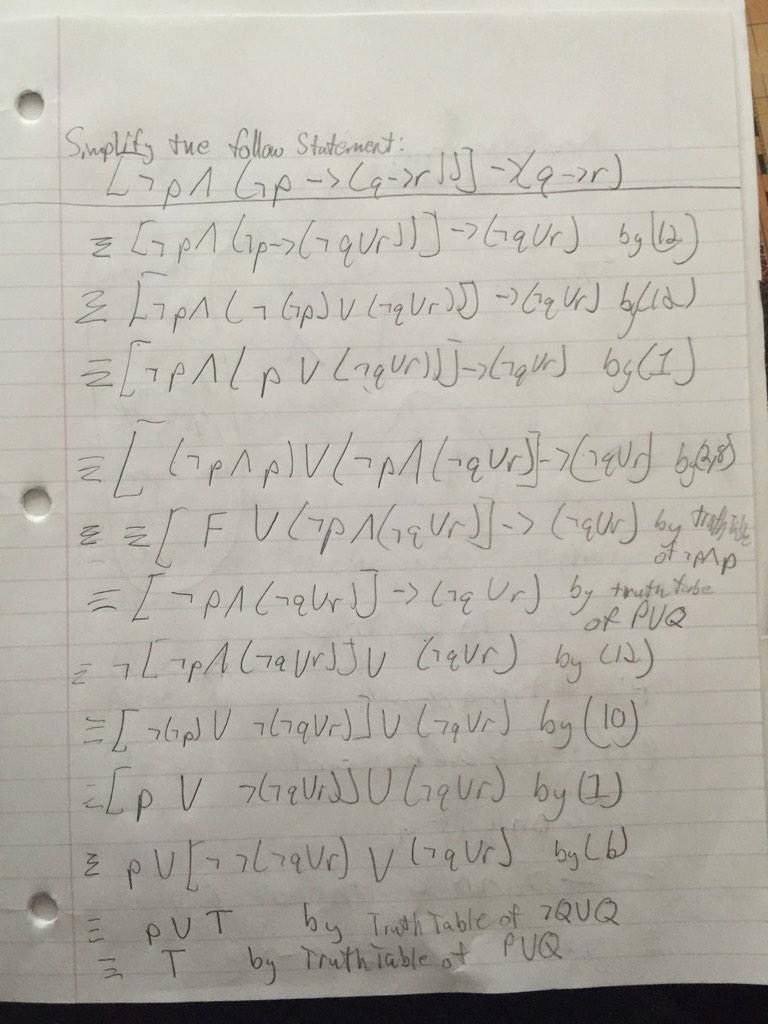 Simplify the follow Statement:
[¬p∧ (¬p -> (q->r))] ->(q->r)
≡ [¬p∧(¬p->(¬qUr))] ->(¬qUr) by(12)
≡ [¬p∧ (¬(¬p)∪(¬qUr))] ->(¬qUr) by(12)
≡[¬p∧( p ∪ (¬qUr))]->(¬qUr) by(1)
≡[ (¬p∧p)∪(¬p∧(¬qUr)]->(¬qUr)
≡ ≡[ F ∪(¬p∧(¬qUr)]-> (¬qUr) by truth table
of ¬p∧p
≡[ ¬p∧(¬qUr)] ->(¬qUr) by truth table
of PUQ
≡ ¬[¬p∧(¬qUr)]∪ (¬qUr) by (12)
≡[ ¬(¬p)∪ ¬(¬qUr)]∪(¬qUr) by(10)
≡[p ∪ ¬(¬qUr)]∪(¬qUr) by(1)
≡ p∪[¬¬(¬qUr) ∪(¬qUr) by(6)
≡ pUT by Truth Table of ¬QUQ
≡ T by Truth Table of PUQ